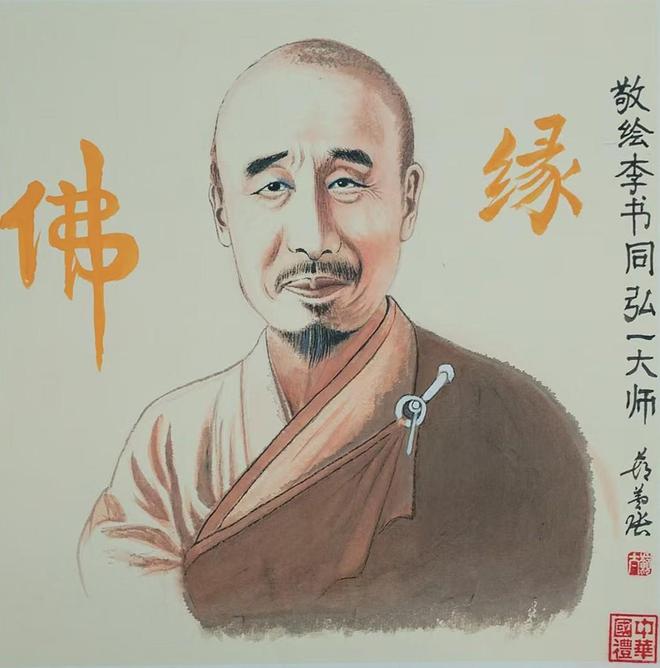 佛缘
敬绘李书同弘一大师
中华
國禮